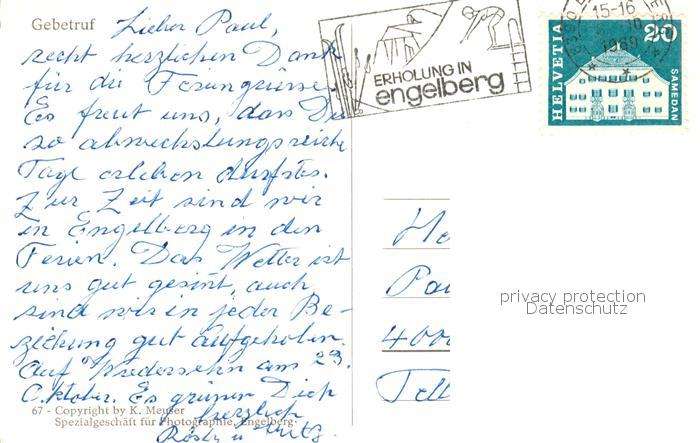 Gebetruf
Lieber Paul,
recht herzlichen Dank
für die Feriengrüsse.
Es freut uns, dass Du
so abwechslungsreiche
Tage erleben durftest.
Zur Zeit sind wir
in Engelberg in den
Ferien. Das Wetter ist
uns gut gesinnt, auch
sind wir in jeder Be-
ziehung gut aufgehoben.
Auf Wiedersehn am 23.
Oktober. Es grüssen Dich
herzlich
67 - Copyright by K. Meuser
Spezialgeschäft für Photographie, Engelberg
ERHOLUNG IN
engelberg
15-16
1969
HELVETIA
20
SAMEDAN
He
Pau
4000
Tell
privacy protection
Datenschutz